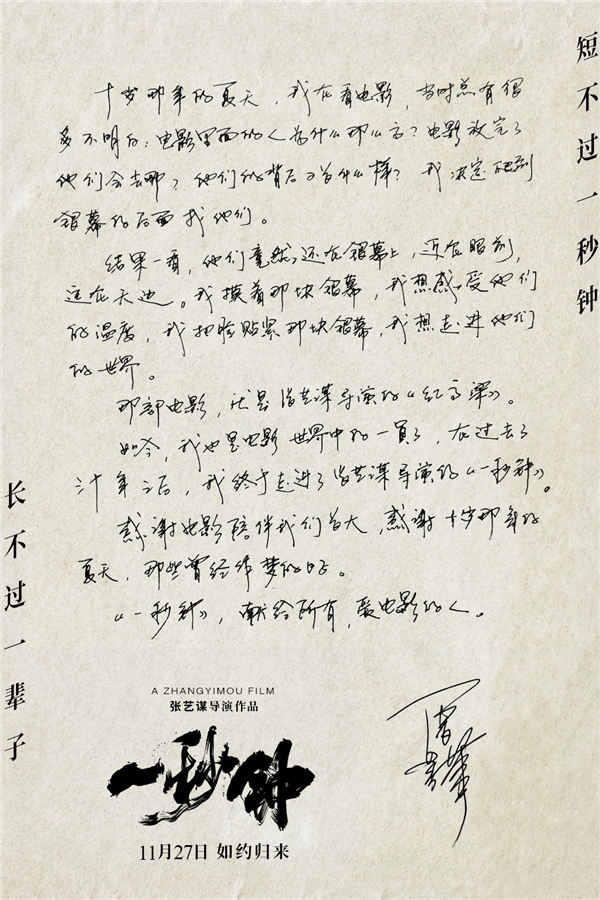 短不过一秒钟
十岁那年的夏天，我在看电影，当时总有很
多不明白：电影里面的人为什么那么高？电影放完了
他们会去哪？他们的背后又是什么样？我决定爬到
银幕的后面找他们。
结果一看，他们竟然还在银幕上，近在眼前，
远在天边。我摸着那块银幕，我想感受他们
的温度，我把脸贴紧那块银幕，我想走进他们
的世界。
那部电影，就是张艺谋导演的《红高粱》。
如今，我也是电影世界中的一員了，在过去了
年之后，我终于走进了张艺谋导演的《一秒钟》。
感谢电影陪伴我们长大，感谢十岁那年的
夏天，那些曾经作梦的
《一秒钟》，献给所有爱电影的人。
长不过一辈子
A ZHANGYIMOU FILM
张艺谋导演作品
一秒钟
11月27日 如约归来